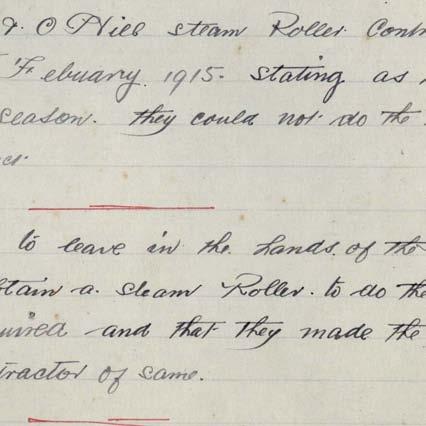 O Niell steam Roller Contr
February. 1915. stating as
season. they could not do the
to leave in the hands. of the
tain a. steam Roller. to do the
uired and that they made the
tractor of same.